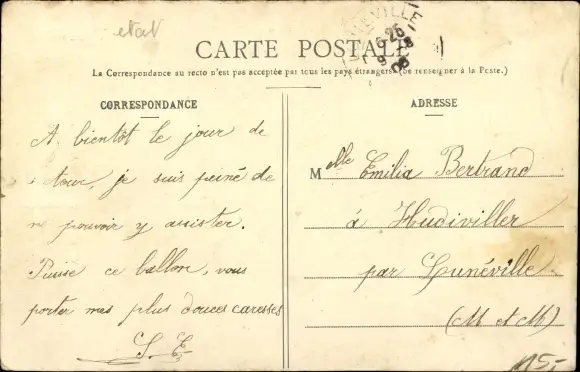 etat
CARTE POSTALE
La Correspondance au recto n'est pas acceptée par tous les pays étrangers (Se renseigner à la Poste.)
CORRESPONDANCE
A bientôt le jour de
tour, je suis peiné de
ne pouvoir y assister.
Puisse ce ballon, vous
porter mes plus douces caresses
S. E
ADRESSE
Melle Emilia Bertrand
à Hudiviller
par Lunéville
(M et M)
15,-